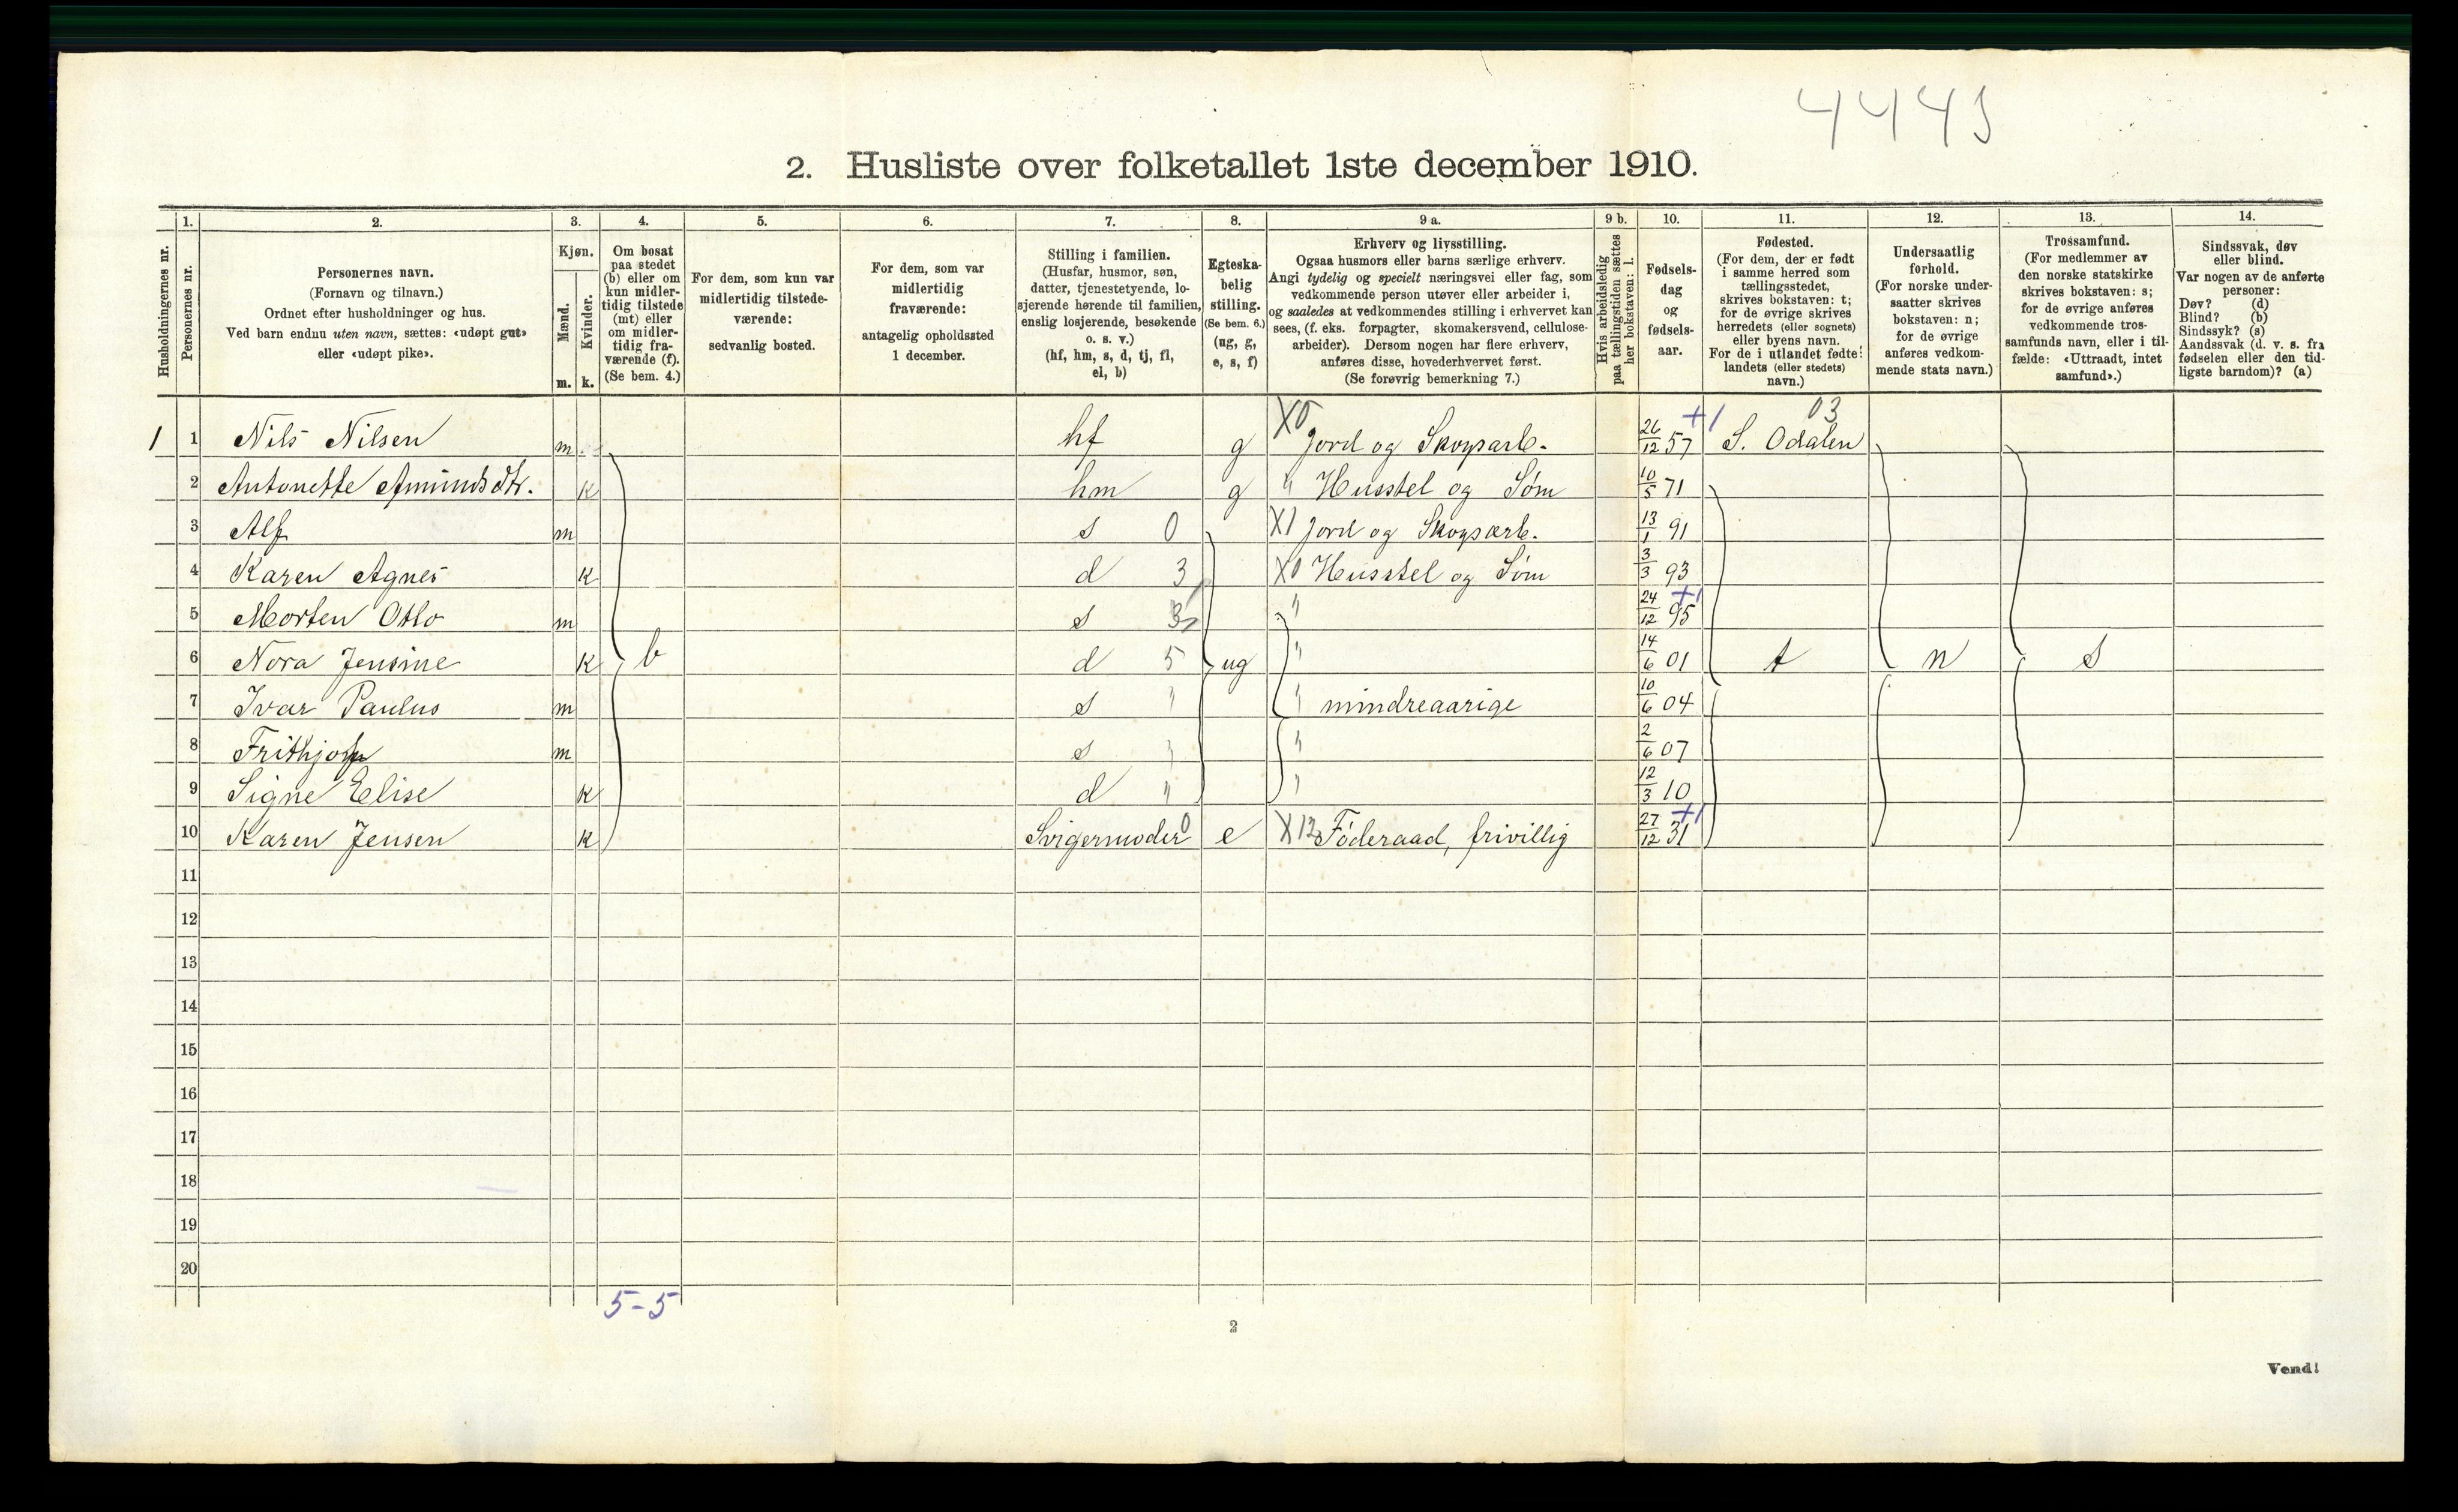 4445
2. Husliste over folketallet 1ste december 1910.
Husholdningernes nr.
1.
Personernes nr.
2.
Personernes navn.
(Fornavn og tilnavn.)
Ordnet efter husholdninger og hus.
Ved barn endnu uten navn, sættes: «udøpt gut»
eller «udøpt pike».
3.
Kjøn.
Mænd.
m.
Kvinder.
k.
4.
Om bosat
paa stedet
(b) eller om
kun midler-
tidig tilstede
(mt) eller
om midler-
tidig fra-
værende (f).
(Se bem. 4.)
5.
For dem, som kun var
midlertidig tilstede-
værende:
sedvanlig bosted.
6.
For dem, som var
midlertidig
fraværende:
antagelig opholdssted
1 december.
7.
Stilling i familien.
(Husfar, husmor, søn,
datter, tjenestetyende, lo-
sjerende hørende til familien,
enslig losjerende, besøkende
o. s. v.)
(hf, hm, s, d, tj, fl,
el, b)
8.
Egteska-
belig
stilling.
(Se bem. 6.)
(ug, g,
e, s, f)
9 a.
Erhverv og livsstilling.
Ogsaa husmors eller barns særlige erhverv.
Angi tydelig og specielt næringsvei eller fag, som
vedkommende person utøver eller arbeider i,
og saaledes at vedkommendes stilling i erhvervet kan
sees, (f. eks. forpagter, skomakersvend, cellulose-
arbeider). Dersom nogen har flere erhverv,
anføres disse, hovederhvervet først.
(Se forøvrig bemerkning 7.)
9 b.
Hvis arbeidsledig
paa tællingstiden sættes
her bokstaven: l.
10.
Fødsels-
dag
og
fødsels-
aar.
11.
Fødested.
(For dem, der er født
i samme herred som
tællingsstedet,
skrives bokstaven: t;
for de øvrige skrives
herredets (eller sognets)
eller byens navn.
For de i utlandet fødte:
landets (eller stedets)
navn.)
12.
Undersaatlig
forhold.
(For norske under-
saatter skrives
bokstaven: n;
for de øvrige
anføres vedkom-
mende stats navn.)
13.
Trossamfund.
(For medlemmer av
den norske statskirke
skrives bokstaven: s;
for de øvrige anføres
vedkommende tros-
samfunds navn, eller i til-
fælde: «Uttraadt, intet
samfund».)
14.
Sindssvak, døv
eller blind.
Var nogen av de anførte
personer:
Døv? (d)
Blind? (b)
Sindssyk? (s)
Aandssvak (d. v. s. fra
fødselen eller den tid-
ligste barndom)? (a)
1 1 Nils Nilsen m hf g X0 Jord og Skogsarb. 26/12 57 +1 S. Odalen 03
2 Antonette Amundsdtr. k hm g " Husstel og Søm 10/5 71
3 Alf m s 0 X1 Jord og Skogsarb. 13/1 91
4 Karen Agnes k d 3 X0 Husstel og Søm 3/3 93
5 Morten Otto m s 3 " 24/12 95 +1
6 Nora Jensine k b d 5 ug " 14/6 01 t n s
7 Ivar Paulus m s " " mindreaarige 10/6 04
8 Frithjof m s " " 2/6 07
9 Signe Elise k d " " 12/3 10
10 Karen Jensen k Svigermoder 0 e X12 Föderaad, frivillig 27/12 31 +1
11
12
13
14
15
16
17
18
19
20
5-5
2
Vend!